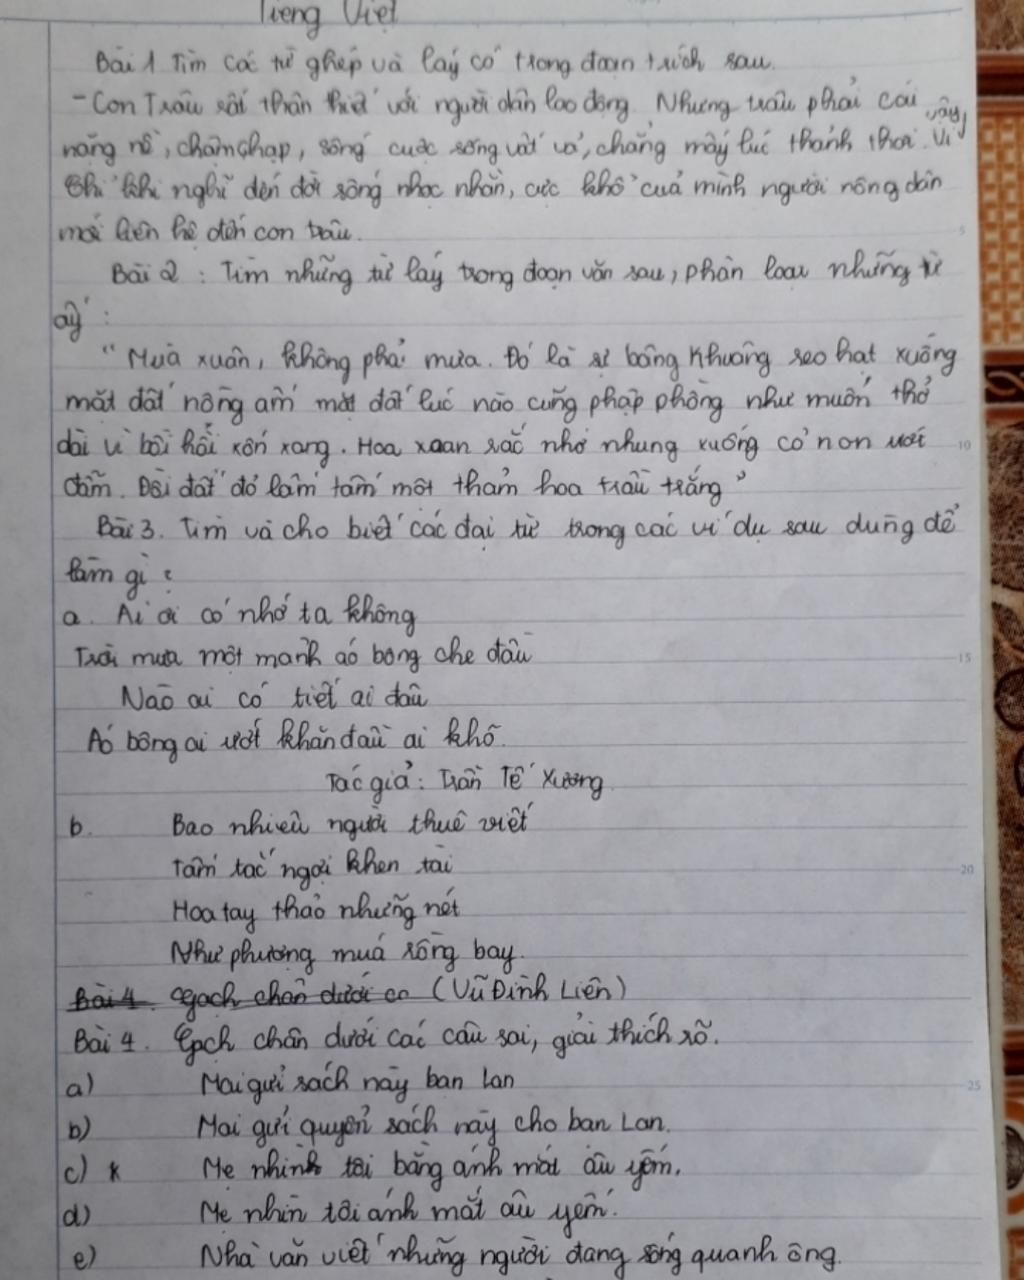 Tiếng Việt
Bài 1 Tìm các từ ghép và láy có trong đoạn trích sau.
- Con Trâu rất thân thiết với người dân lao động. Nhưng trâu phải cái
nặng nề, chậm chạp, sống cuộc sống vất vả, chẳng mấy lúc thảnh thơi. Vì vậy
khi nghĩ đến đời sống nhọc nhằn, cực khổ của mình người nông dân
mới liên hệ đến con trâu.
Bài 2: Tìm những từ láy trong đoạn văn sau, phân loại những từ
ấy:
"Mưa xuân, không phải mưa. Đó là sự bâng khuâng reo hạt xuống
mặt đất nồng ấm mặt đất lúc nào cũng phập phồng như muốn thở
dài vì bồi hồi xốn xang. Hoa xoan rắc nhớ nhung xuống cỏ non ướt
đẫm. Đồi đất đỏ lấm tấm một thảm hoa trẩu trắng"
Bài 3. Tìm và cho biết các đại từ trong các ví dụ sau dùng để
làm gì?
a. Ai ơi có nhớ ta không
Trời mưa một mảnh áo bông che đầu
Nào ai có tiếc ai đâu
Áo bông ai ướt khăn đầu ai khô.
Tác giả: Trần Tế Xương
b. Bao nhiêu người thuê viết
Tấm tắc ngợi khen tài
Hoa tay thảo những nét
Như phượng múa rồng bay.
Bài 4. Gạch chân dưới co (Vũ Đình Liên)
Bài 4. Gạch chân dưới các câu sai, giải thích rõ.
a) Mai gửi sách này bạn Lan
b) Mai gửi quyển sách này cho bạn Lan.
c) Mẹ nhìn tôi bằng ánh mắt âu yếm.
d) Mẹ nhìn tôi ánh mắt âu yếm.
e) Nhà văn viết những người đang sống quanh ông.